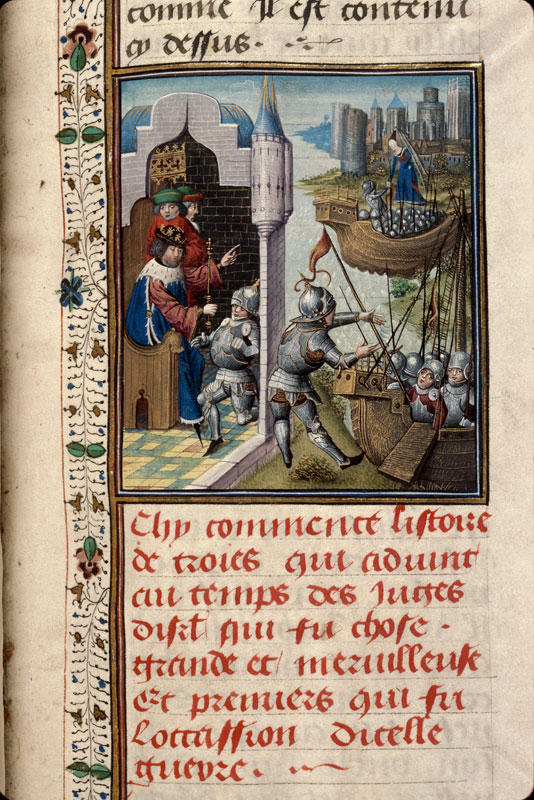 comme Il est contenu
cy dessus.
Chy commence listoire
de troies qui advint
au temps des Juges
disrl qui fu chose.
grande et merveilleuse
Et premiers qui fu
Loccassion dicelle
guerre.